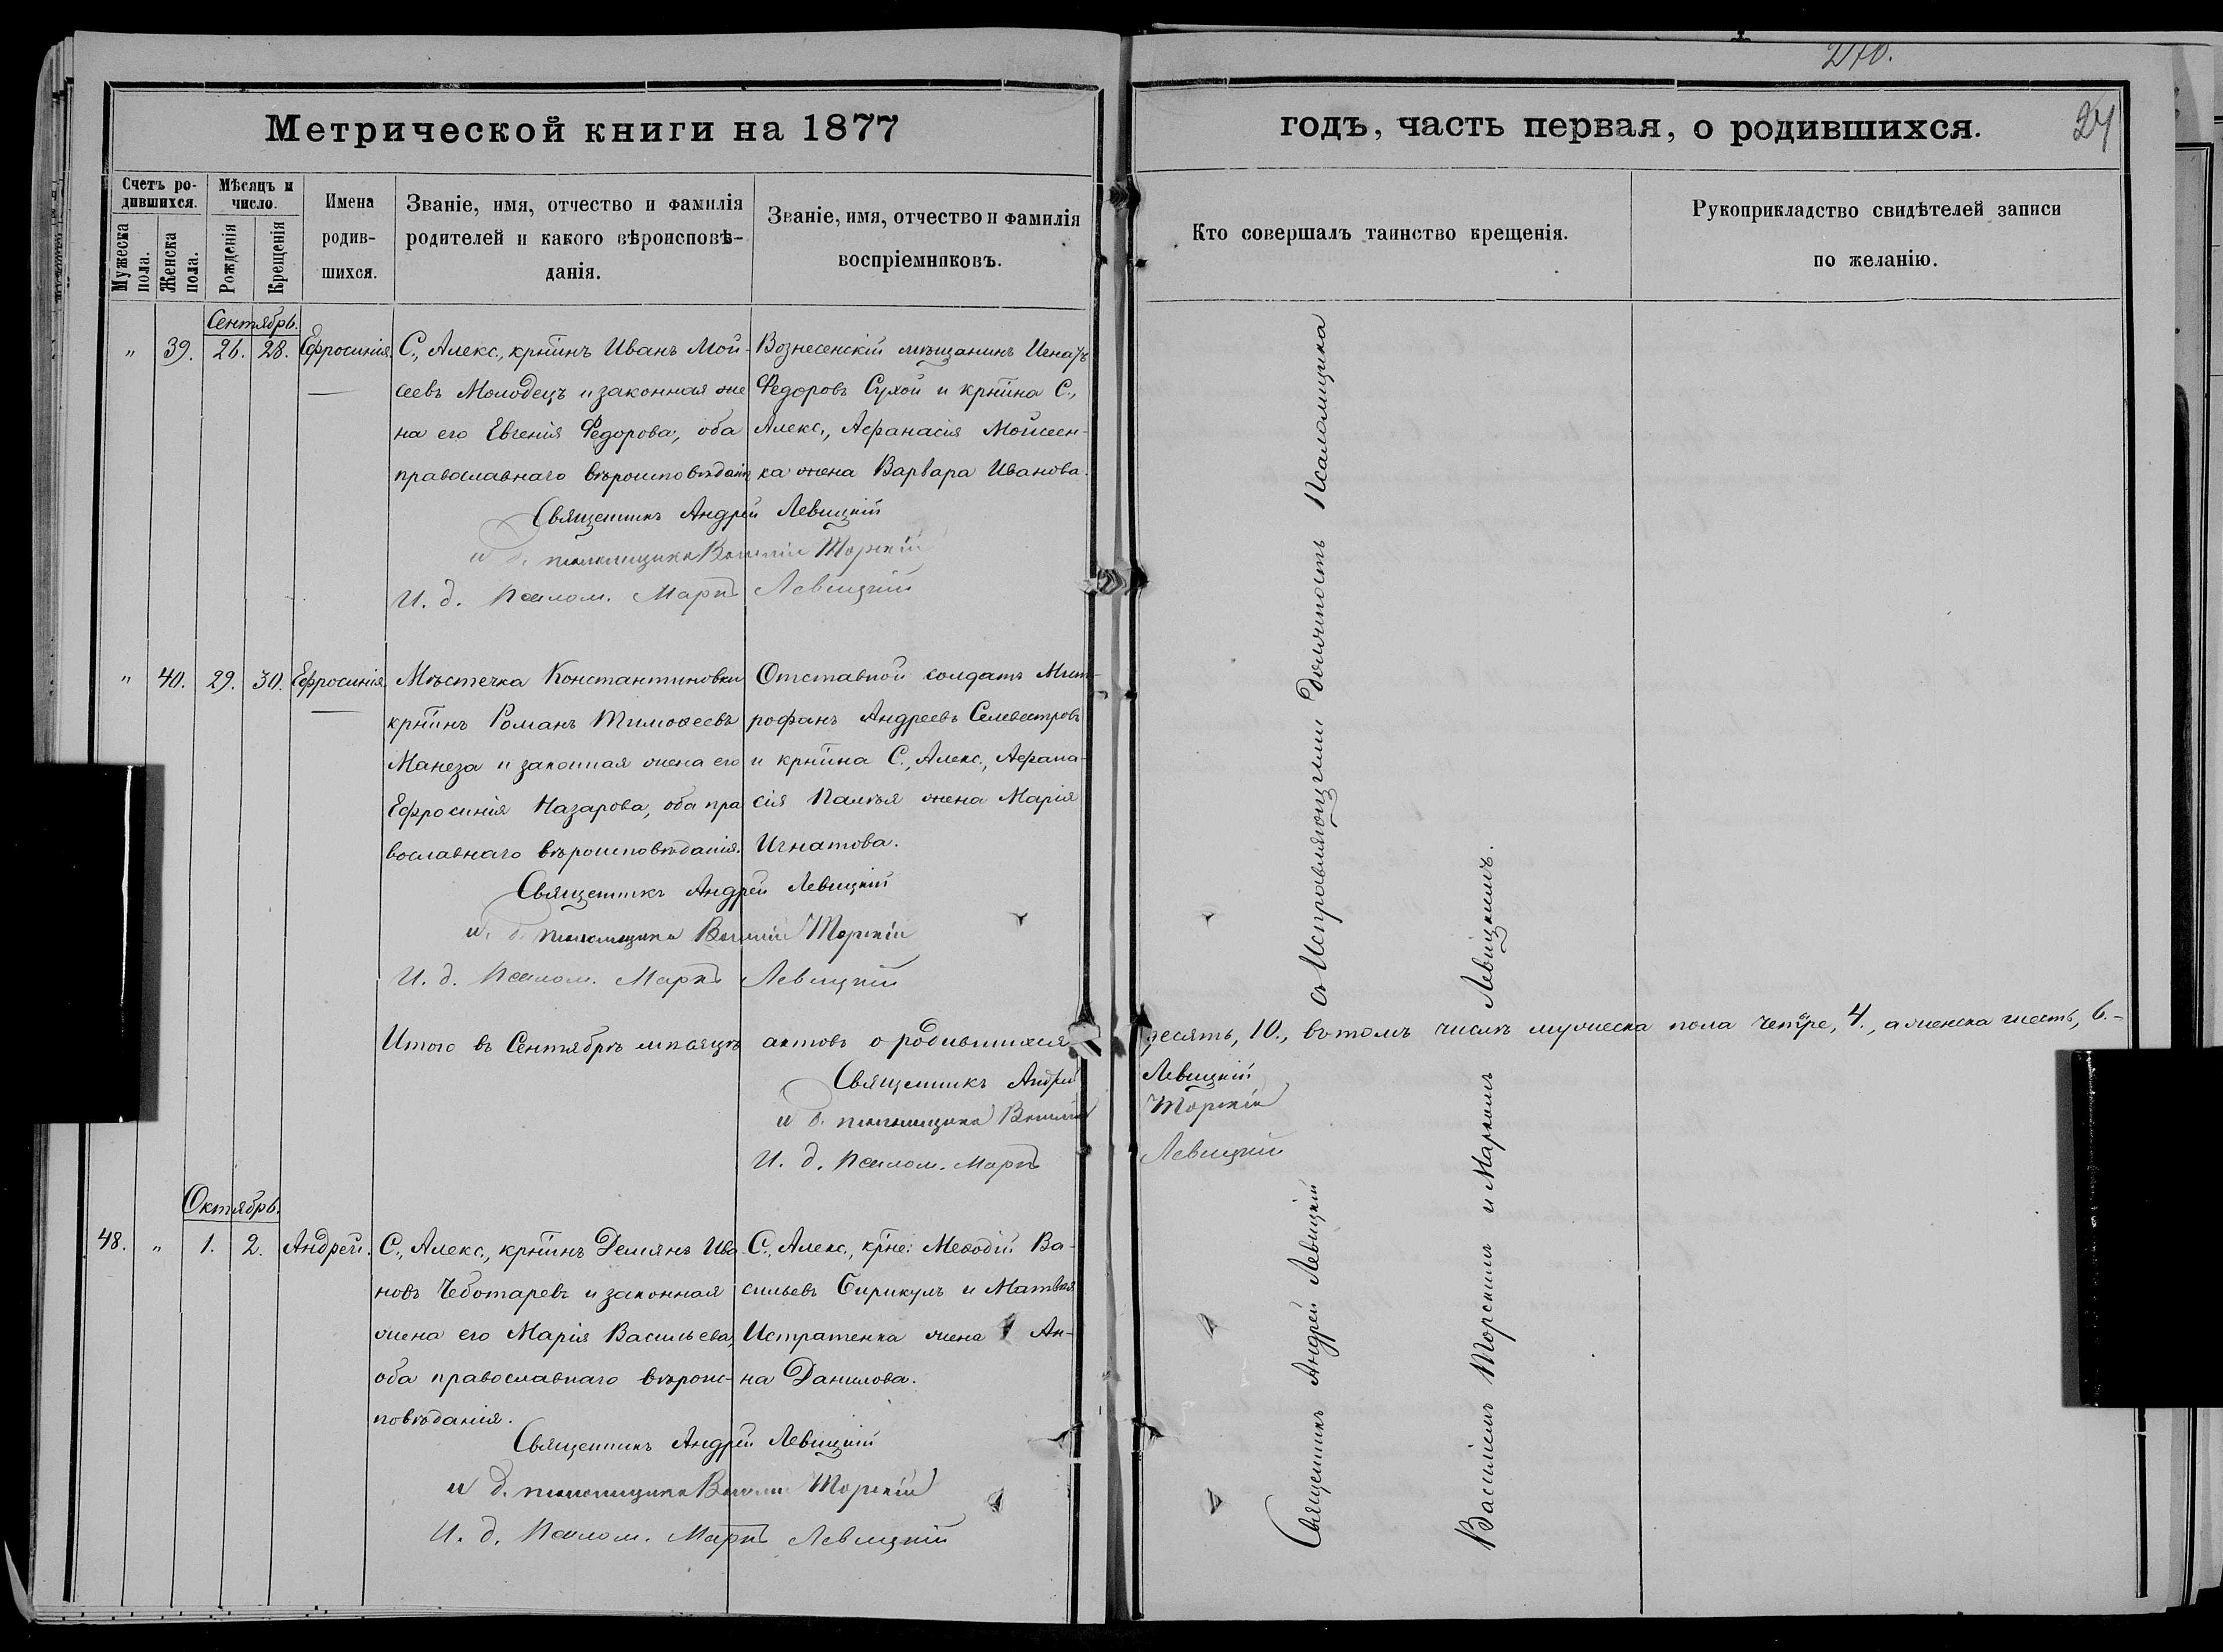 270.
Метрической книги на 1877
годъ, часть первая, о родившихся.
Счетъ ро-
дившихся.
Мужеска пола.
Женска пола.
Мѣсяцъ и
число.
Рожденія
Крещенія
Имена
родив-
шихся.
Званіе, имя, отчество и фамилія
родителей и какого вѣроисповѣ-
данія.
Званіе, имя, отчество и фамилія
воспріемниковъ.
Кто совершалъ таинство крещенія.
Рукоприкладство свидѣтелей записи
по желанію.
Сентябрь.
" 39. 26. 28. Ефросинія.
С., Алекс., крнинъ Иванъ Мой-
сеевъ Молодецъ и законная же
на его Евгенія Федорова, оба
православнаго вѣроисповѣданія
Вознесенскій мѣщанинъ Игнатъ
Федоровъ Сухой и крнина С.,
Алекс., Афанасія Мойсеен-
ка жена Варвара Иванова.
Священникъ Андрей Левицкій
и д. псаломщика Василій Торскій
И. д. Псалом. Маркъ Левицкій
" 40. 29. 30. Ефросинія.
Мѣстечка Константиновки
крнинъ Романъ Тимофеевъ
Манеза и законная жена его
Ефросинія Назарова, оба пра
вославнаго вѣроисповѣданія.
Отставной солдатъ Мит-
рофанъ Андреевъ Селевестровъ
и крнина С., Алекс., Афана-
сія Палѣя жена Марія
Игнатова.
Священникъ Андрей Левицкій
и. д. псаломщика Василій Торскій
И. д. Псалом. Маркъ Левицкій
Итого въ Сентябрѣ мѣсяцѣ актовъ о родившихся десять, 10., въ томъ числѣ мужеска пола четыре, 4., а женска шесть, 6.-
Священникъ Андрей Левицкій
и д. псаломщика Василій Торскій
И. д. Псалом. Маркъ Левицкій
Октябрь.
48. " 1. 2. Андрей.
С., Алекс., крнинъ Демянъ Ива
новъ Чеботаревъ и законная
жена его Марія Васильева,
оба православнаго вѣроис-
повѣданія.
С., Алекс., крне: Меѳодій Ва-
сильевъ Бирикулъ и Матвѣя
Истратенка жена Ан-
на Данилова.
Священникъ Андрей Левицкій
и д. псаломщика Василій Торскій
И. д. Псалом. Маркъ Левицкій
Священникъ Андрей Левицкій съ Исправляющими Должность Псаломщика
Василіемъ Торскимъ и Маркомъ Левицкимъ.